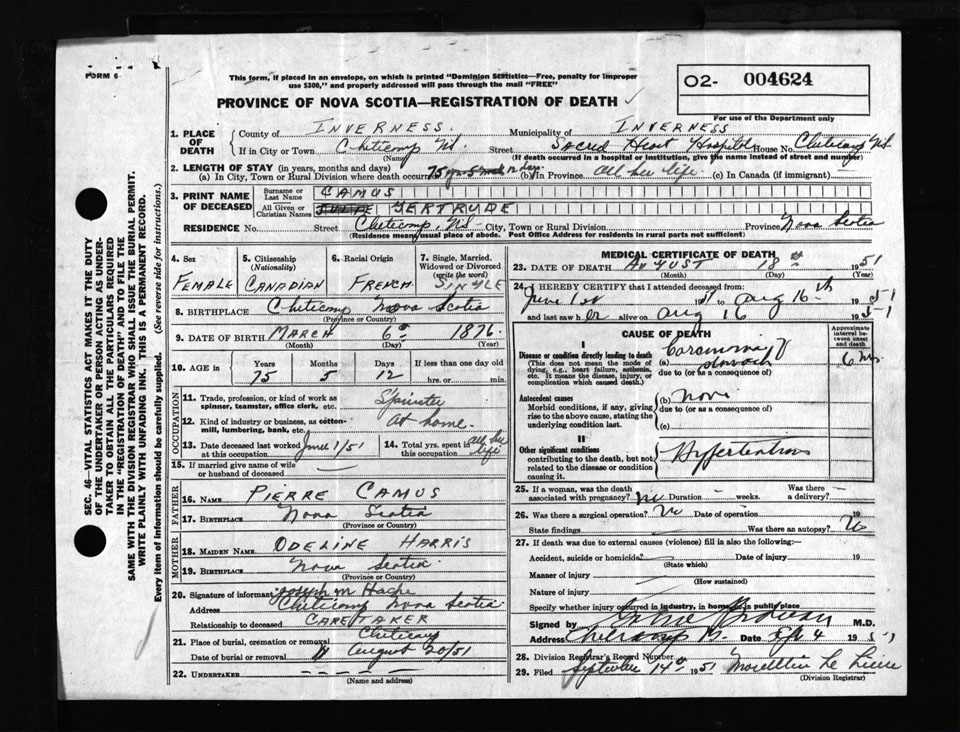 FORM 6
This form, if placed in an envelope, on which is printed "Dominion Statistics—Free, penalty for improper
use $300," and properly addressed will pass through the mail "FREE"
O2- 004624
For use of the Department only
PROVINCE OF NOVA SCOTIA—REGISTRATION OF DEATH
1. PLACE OF DEATH
County of INVERNESS. Municipality of INVERNESS
If in City or Town Cheticamp NS. Street Sacred Heart Hospital House No. Cheticamp NS
(Name) (If death occurred in a hospital or institution, give the name instead of street and number)
2. LENGTH OF STAY (in years, months and days)
(a) In City, Town or Rural Division where death occurred 75 yrs 5 mos 12 days (b) In Province all her life. (c) In Canada (if immigrant) —
3. PRINT NAME OF DECEASED
Surname or Last Name CAMUS
All Given or Christian Names GERTRUDE
RESIDENCE No. Street Cheticamp, NS City, Town or Rural Division Province Nova Scotia
(Residence means usual place of abode. Post Office Address for residents in rural parts not sufficient)
4. Sex FEMALE
5. Citizenship (Nationality) CANADIAN
6. Racial Origin FRENCH
7. Single, Married, Widowed or Divorced (write the word) SINGLE
8. BIRTHPLACE Cheticamp Nova Scotia
(Province or Country)
9. DATE OF BIRTH MARCH 6th 1876
(Month) (Day) (Year)
10. AGE in Years 75 Months 5 Days 12 If less than one day old hrs. or min.
OCCUPATION
11. Trade, profession, or kind of work as spinner, teamster, office clerk, etc. Spinster
12. Kind of industry or business, as cotton-mill, lumbering, bank, etc. At home.
13. Date deceased last worked at this occupation June 1/51
14. Total yrs. spent in this occupation all her life
15. If married give name of wife or husband of deceased —
FATHER
16. NAME PIERRE CAMUS
17. BIRTHPLACE Nova Scotia
(Province or Country)
MOTHER
18. MAIDEN NAME ODELINE HARRIS
19. BIRTHPLACE Nova Scotia
(Province or Country)
20. Signature of informant Joseph M Hache
Address Cheticamp Nova Scotia
Relationship to deceased CARETAKER
21. Place of burial, cremation or removal Cheticamp
Date of burial or removal August 20/51
22. UNDERTAKER — — — — —
(Name and address)
MEDICAL CERTIFICATE OF DEATH
23. DATE OF DEATH AUGUST 18th 1951
(Month) (Day) (Year)
24. I HEREBY CERTIFY that I attended deceased from:
June 1st 51 to Aug 16th 1951
and last saw her alive on Aug 16 1951
CAUSE OF DEATH
Approximate interval between onset and death
I
Disease or condition directly leading to death (a) Carcinoma of stomach 6 mos
(This does not mean the mode of dying, e.g., heart failure, asthenia, etc. It means the disease, injury, or complication which caused death.)
due to (or as a consequence of)
Antecedent causes (b) None
Morbid conditions, if any, giving rise to the above cause, stating the underlying condition last.
due to (or as a consequence of)
(c)
II
Other significant conditions Hypertention
contributing to the death, but not related to the disease or condition causing it.
25. If a woman, was the death associated with pregnancy? no Duration — weeks. Was there a delivery? —
26. Was there a surgical operation? No Date of operation 19
State findings Was there an autopsy? No
27. If death was due to external causes (violence) fill in also the following:—
Accident, suicide or homicide? Date of injury 19
(State which)
Manner of injury
(How sustained)
Nature of injury
Specify whether injury occurred in industry, in home, or in public place
Signed by M.D.
Address Cheticamp NS. Date Sept 4 1951
28. Division Registrar's Record Number
29. Filed September 14th 1951
(Division Registrar)
SEC. 46—VITAL STATISTICS ACT MAKES IT THE DUTY
OF THE UNDERTAKER OR PERSON ACTING AS UNDER-
TAKER TO OBTAIN ALL THE PARTICULARS REQUIRED
IN THE "REGISTRATION OF DEATH" AND TO FILE THE
SAME WITH THE DIVISION REGISTRAR WHO SHALL ISSUE THE BURIAL PERMIT.
WRITE PLAINLY WITH UNFADING INK. THIS IS A PERMANENT RECORD.
Every item of information should be carefully supplied. (See reverse side for instructions.)